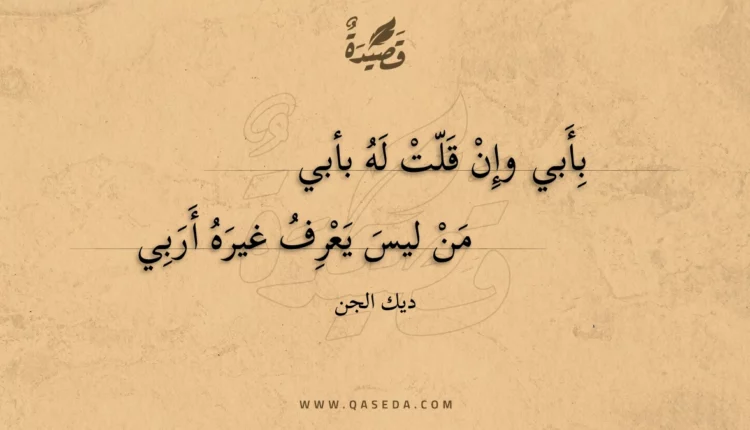 قَصِيْدَةٌ
بِأَبي وإِنْ قَلّتْ لَهُ بأبي
مَنْ ليسَ يَعْرِفُ غيرَهُ أَرَبِي
ديك الجن
WWW.QASEDA.COM